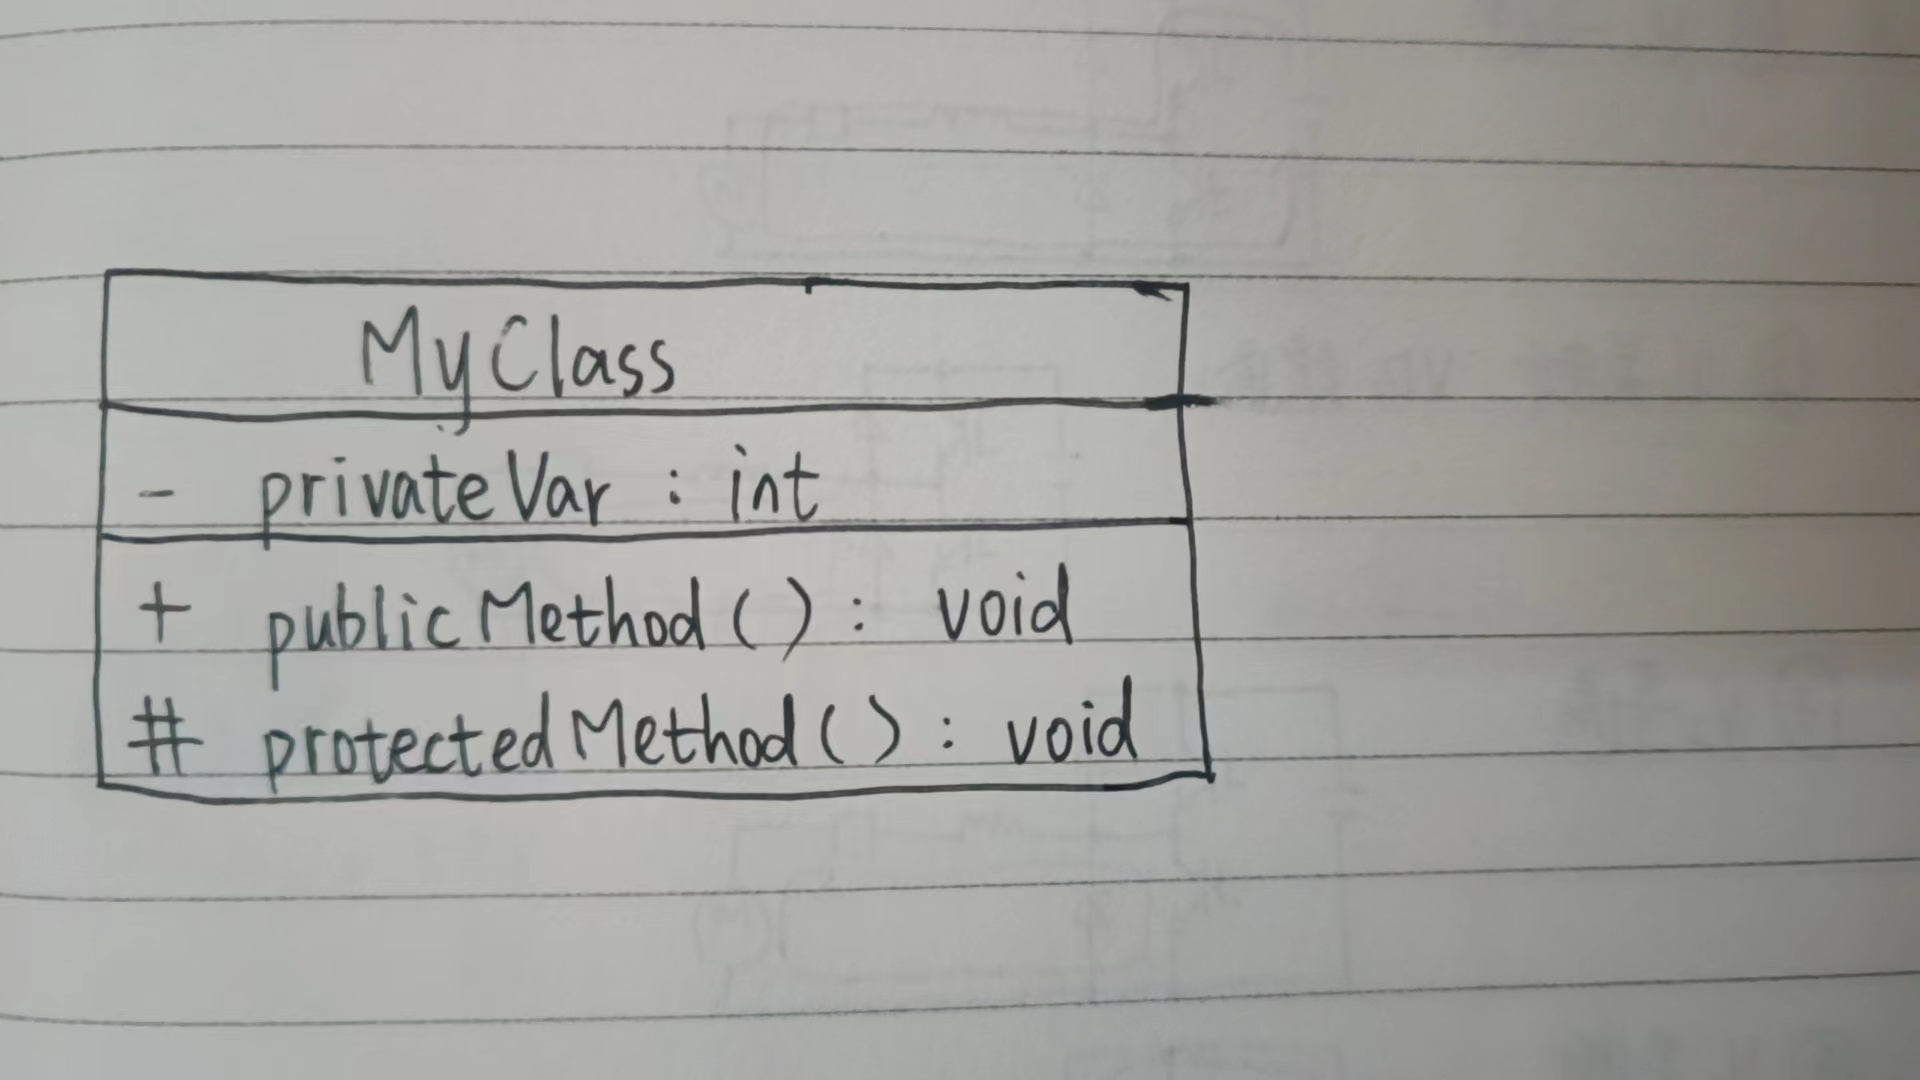 MyClass
- privateVar : int
+ publicMethod() : void
# protectedMethod() : void